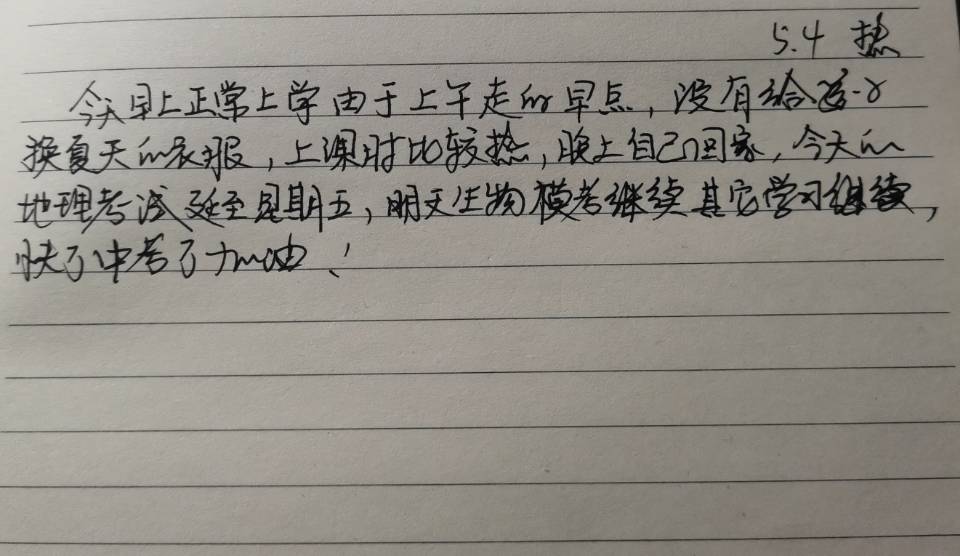 5.4 热
今天早上正常上学由于上午走的早点，没有给
换夏天的衣服，上课时比较热，晚上自己回家，今天的
地理考试延至星期五，明天生物模考继续其它学习继续，
快了中考了加油！